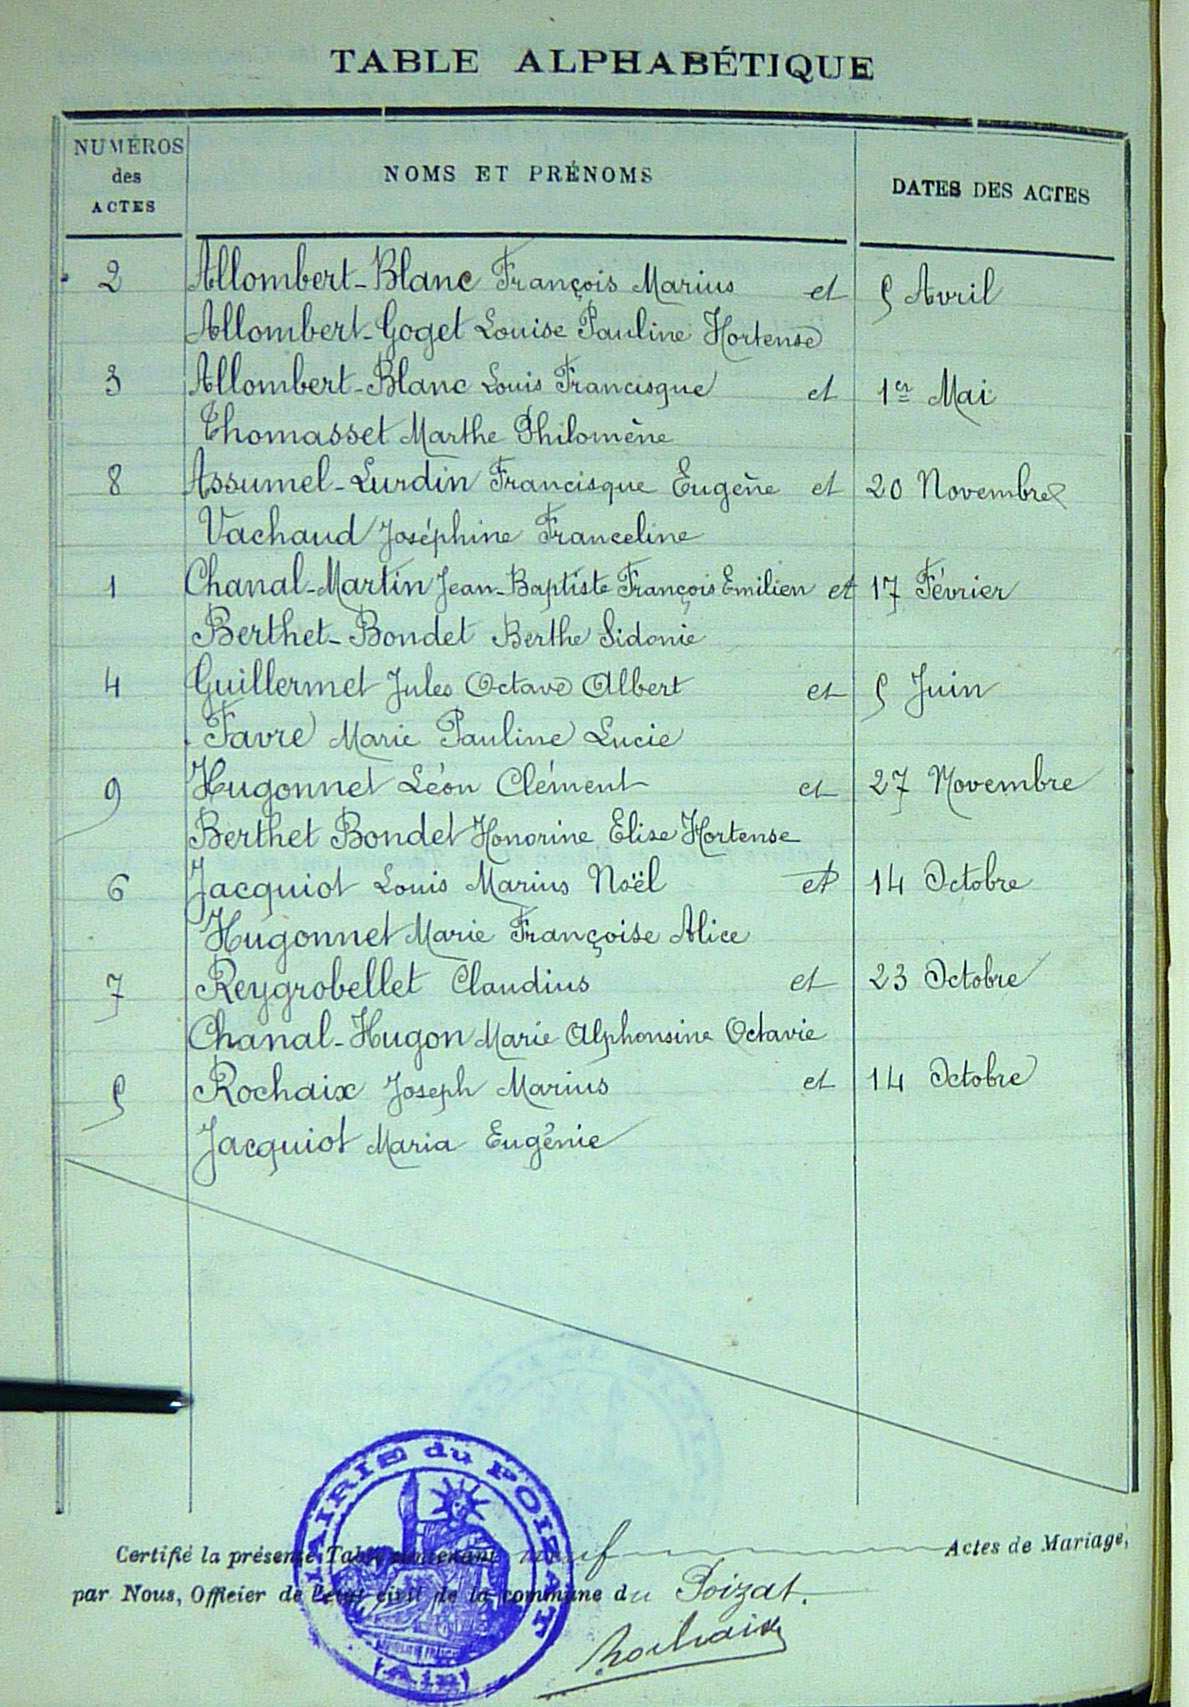 TABLE ALPHABÉTIQUE
NUMÉROS
des
ACTES
NOMS ET PRÉNOMS
DATES DES ACTES
2 Allombert-Blanc François Marius et 5 Avril
Allombert-Goget Louise Pauline Hortense
3 Allombert-Blanc Louis Francisque et 1er Mai
Thomasset Marthe Philomène
8 Assumel-Lurdin Francisque Eugène et 20 Novembre
Vachaud Joséphine Franceline
1 Chanal-Martin Jean-Baptiste François Emilien et 17 Février
Berthet-Bondet Berthe Sidonie
4 Guillermet Jules Octave Albert et 5 Juin
Favre Marie Pauline Lucie
9 Hugonnet Léon Clément et 27 Novembre
Berthet Bondet Honorine Elise Hortense
6 Jacquiot Louis Marius Noël et 14 Octobre
Hugonnet Marie Françoise Alice
7 Reygrobellet Claudius et 23 Octobre
Chanal-Hugon Marie Alphonsine Octavie
5 Rochaix Joseph Marius et 14 Octobre
Jacquiot Maria Eugénie
MAIRIE du POIZAT
(Ain)
Certifié la présente Table contenant neuf Actes de Mariage,
par Nous, Officier de l'état civil de la commune du Poizat.
Rochaix